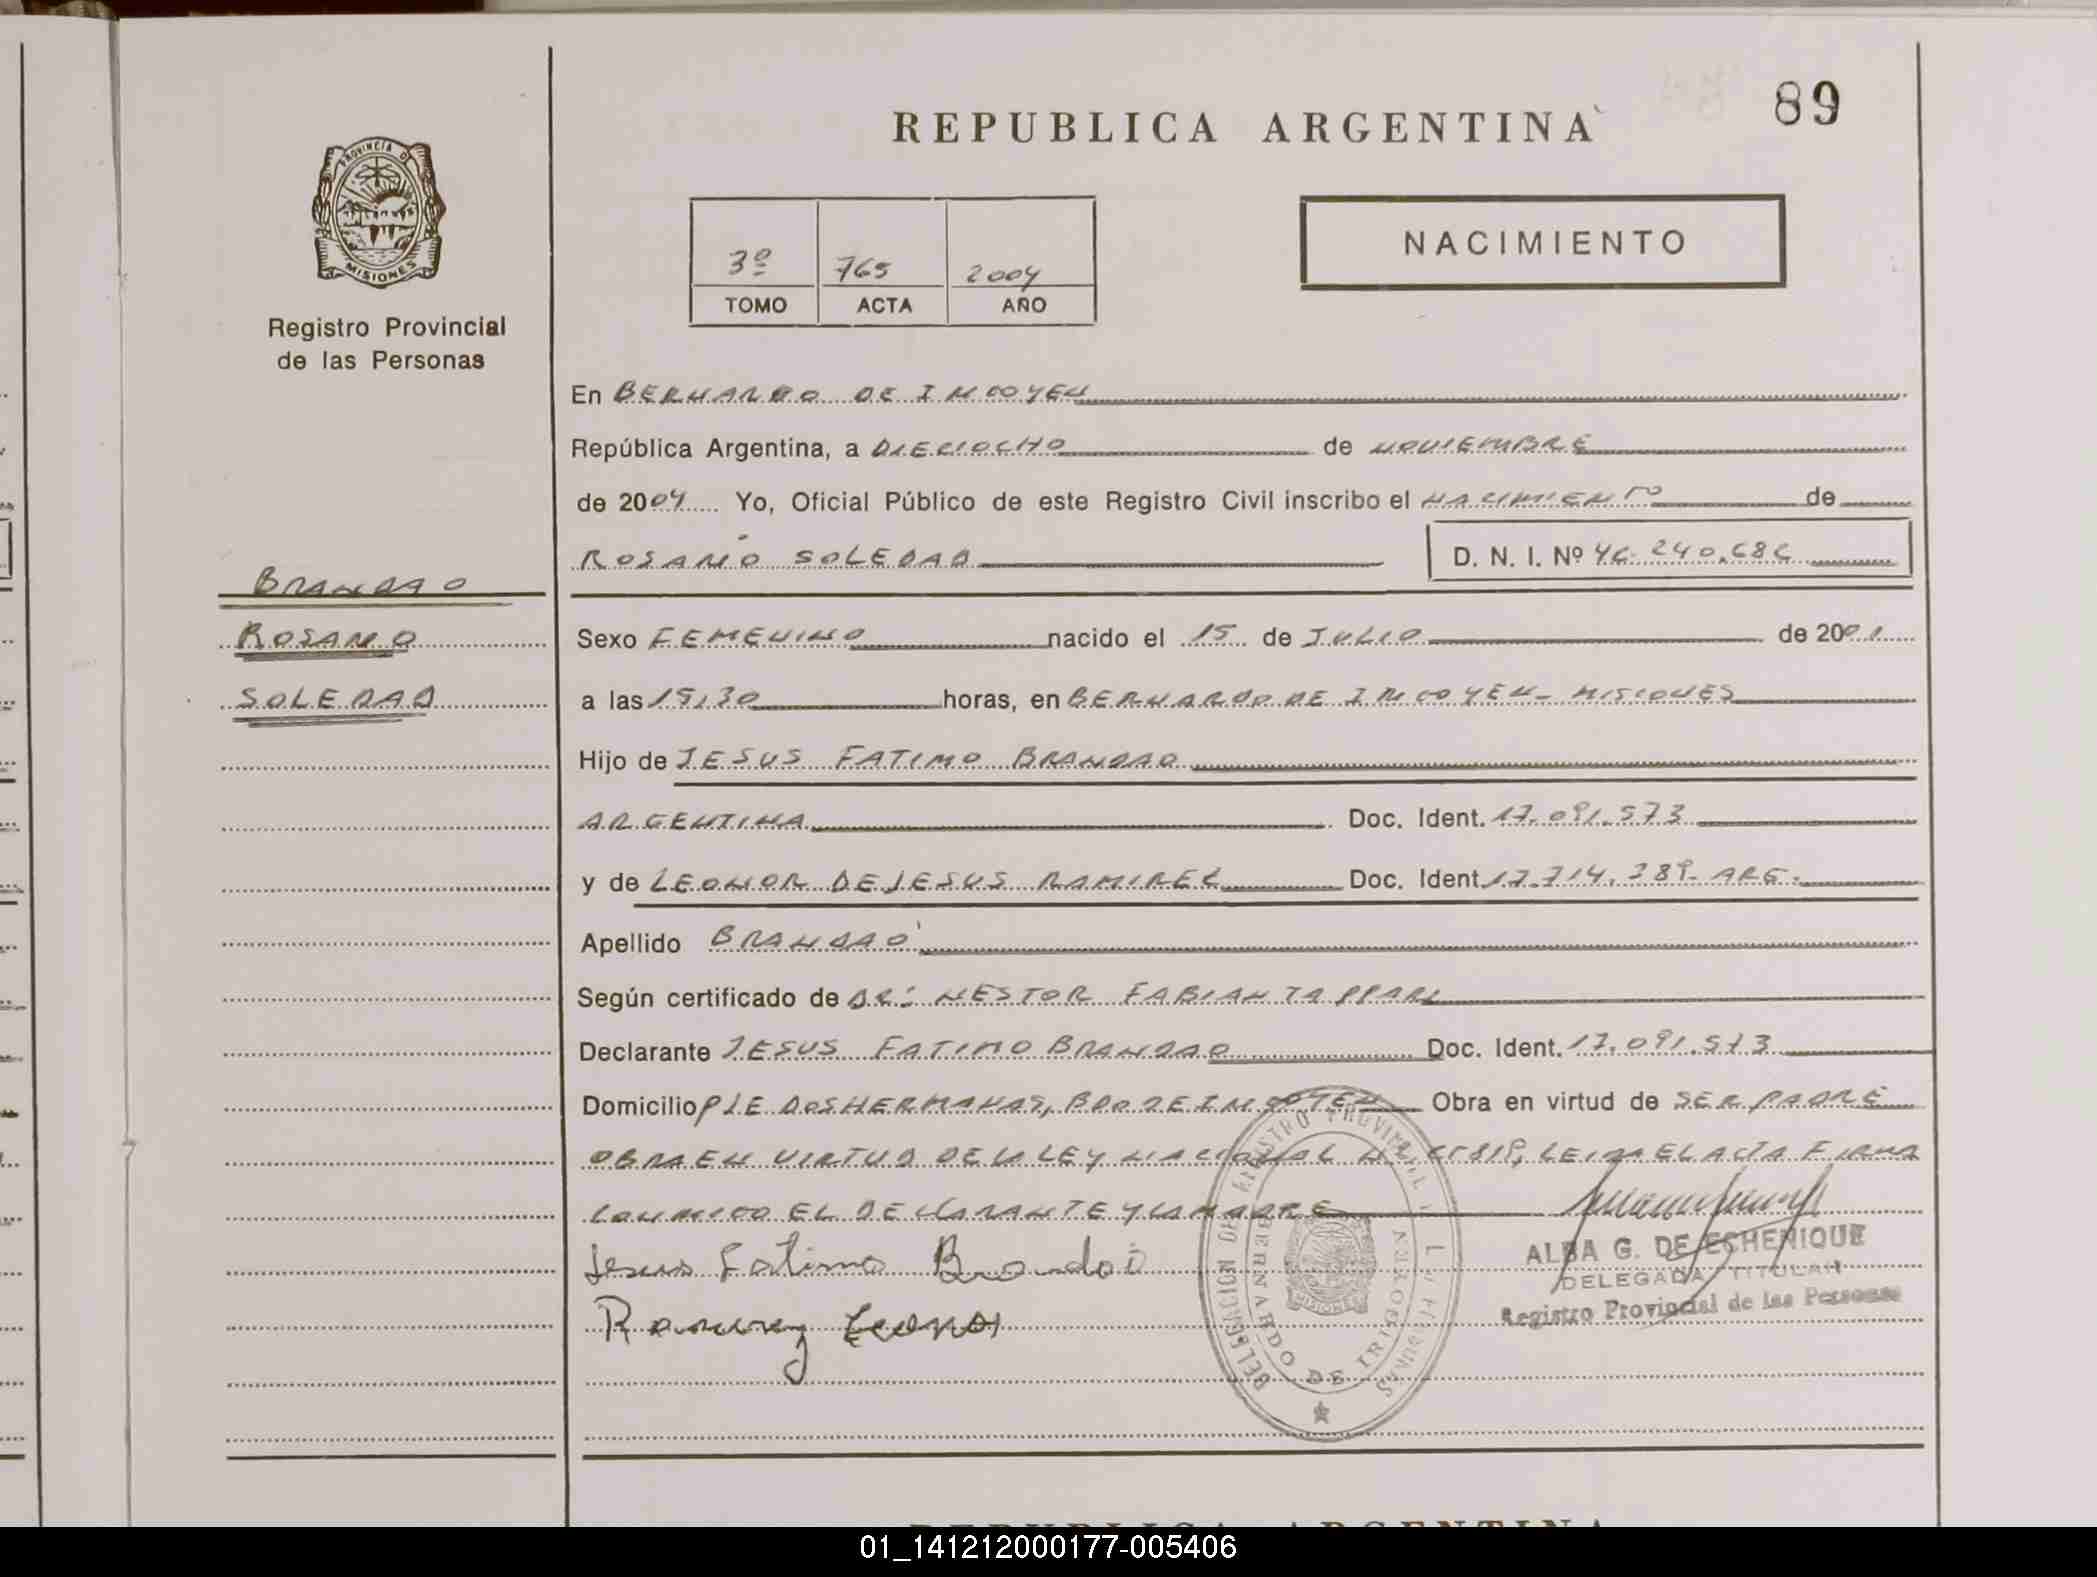 89
REPUBLICA ARGENTINA
NACIMIENTO
PROVINCIA D MISIONES
Registro Provincial
de las Personas
3º 765 2004
TOMO ACTA AÑO
En BERNARDO DE IRIGOYEN
República Argentina, a DIECIOCHO de NOVIEMBRE
de 2004 Yo, Oficial Público de este Registro Civil inscribo el NACIMIENTO de
ROSARIO SOLEDAD D. N. I. Nº 46.240.686
BRANDAO
ROSARIO
SOLEDAD
Sexo FEMENINO nacido el 15 de JULIO de 2001
a las 15,30 horas, en BERNARDO DE IRIGOYEN - MISIONES
Hijo de JESUS FATIMO BRANDAO
ARGENTINA Doc. Ident. 17.091.573
y de LEONOR DE JESUS RAMIREZ Doc. Ident. ARG.
Apellido BRANDAO
Según certificado de DR: NESTOR FABIAN
Declarante JESUS FATIMO BRANDAO Doc. Ident. 17.091.573
Domicilio PJE DOS HERMANAS, BDO DE IRIGOYEN Obra en virtud de SER PADRE
OBRA EN VIRTUD DE LA LEY NACIONAL LEIDA EL ACTA FIRMA
CONMIGO EL DECLARANTE Y LA MADRE
Jesus Fatimo Brandao
Ramirez Leonor
DELEGACION DEL REGISTRO PROVINCIAL DE LAS PERSONAS
BERNARDO DE IRIGOYEN
MISIONES
ALBA G. DE ECHENIQUE
DELEGADA TITULAR
Registro Provincial de las Personas
REPUBLICA ARGENTINA
01_141212000177-005406